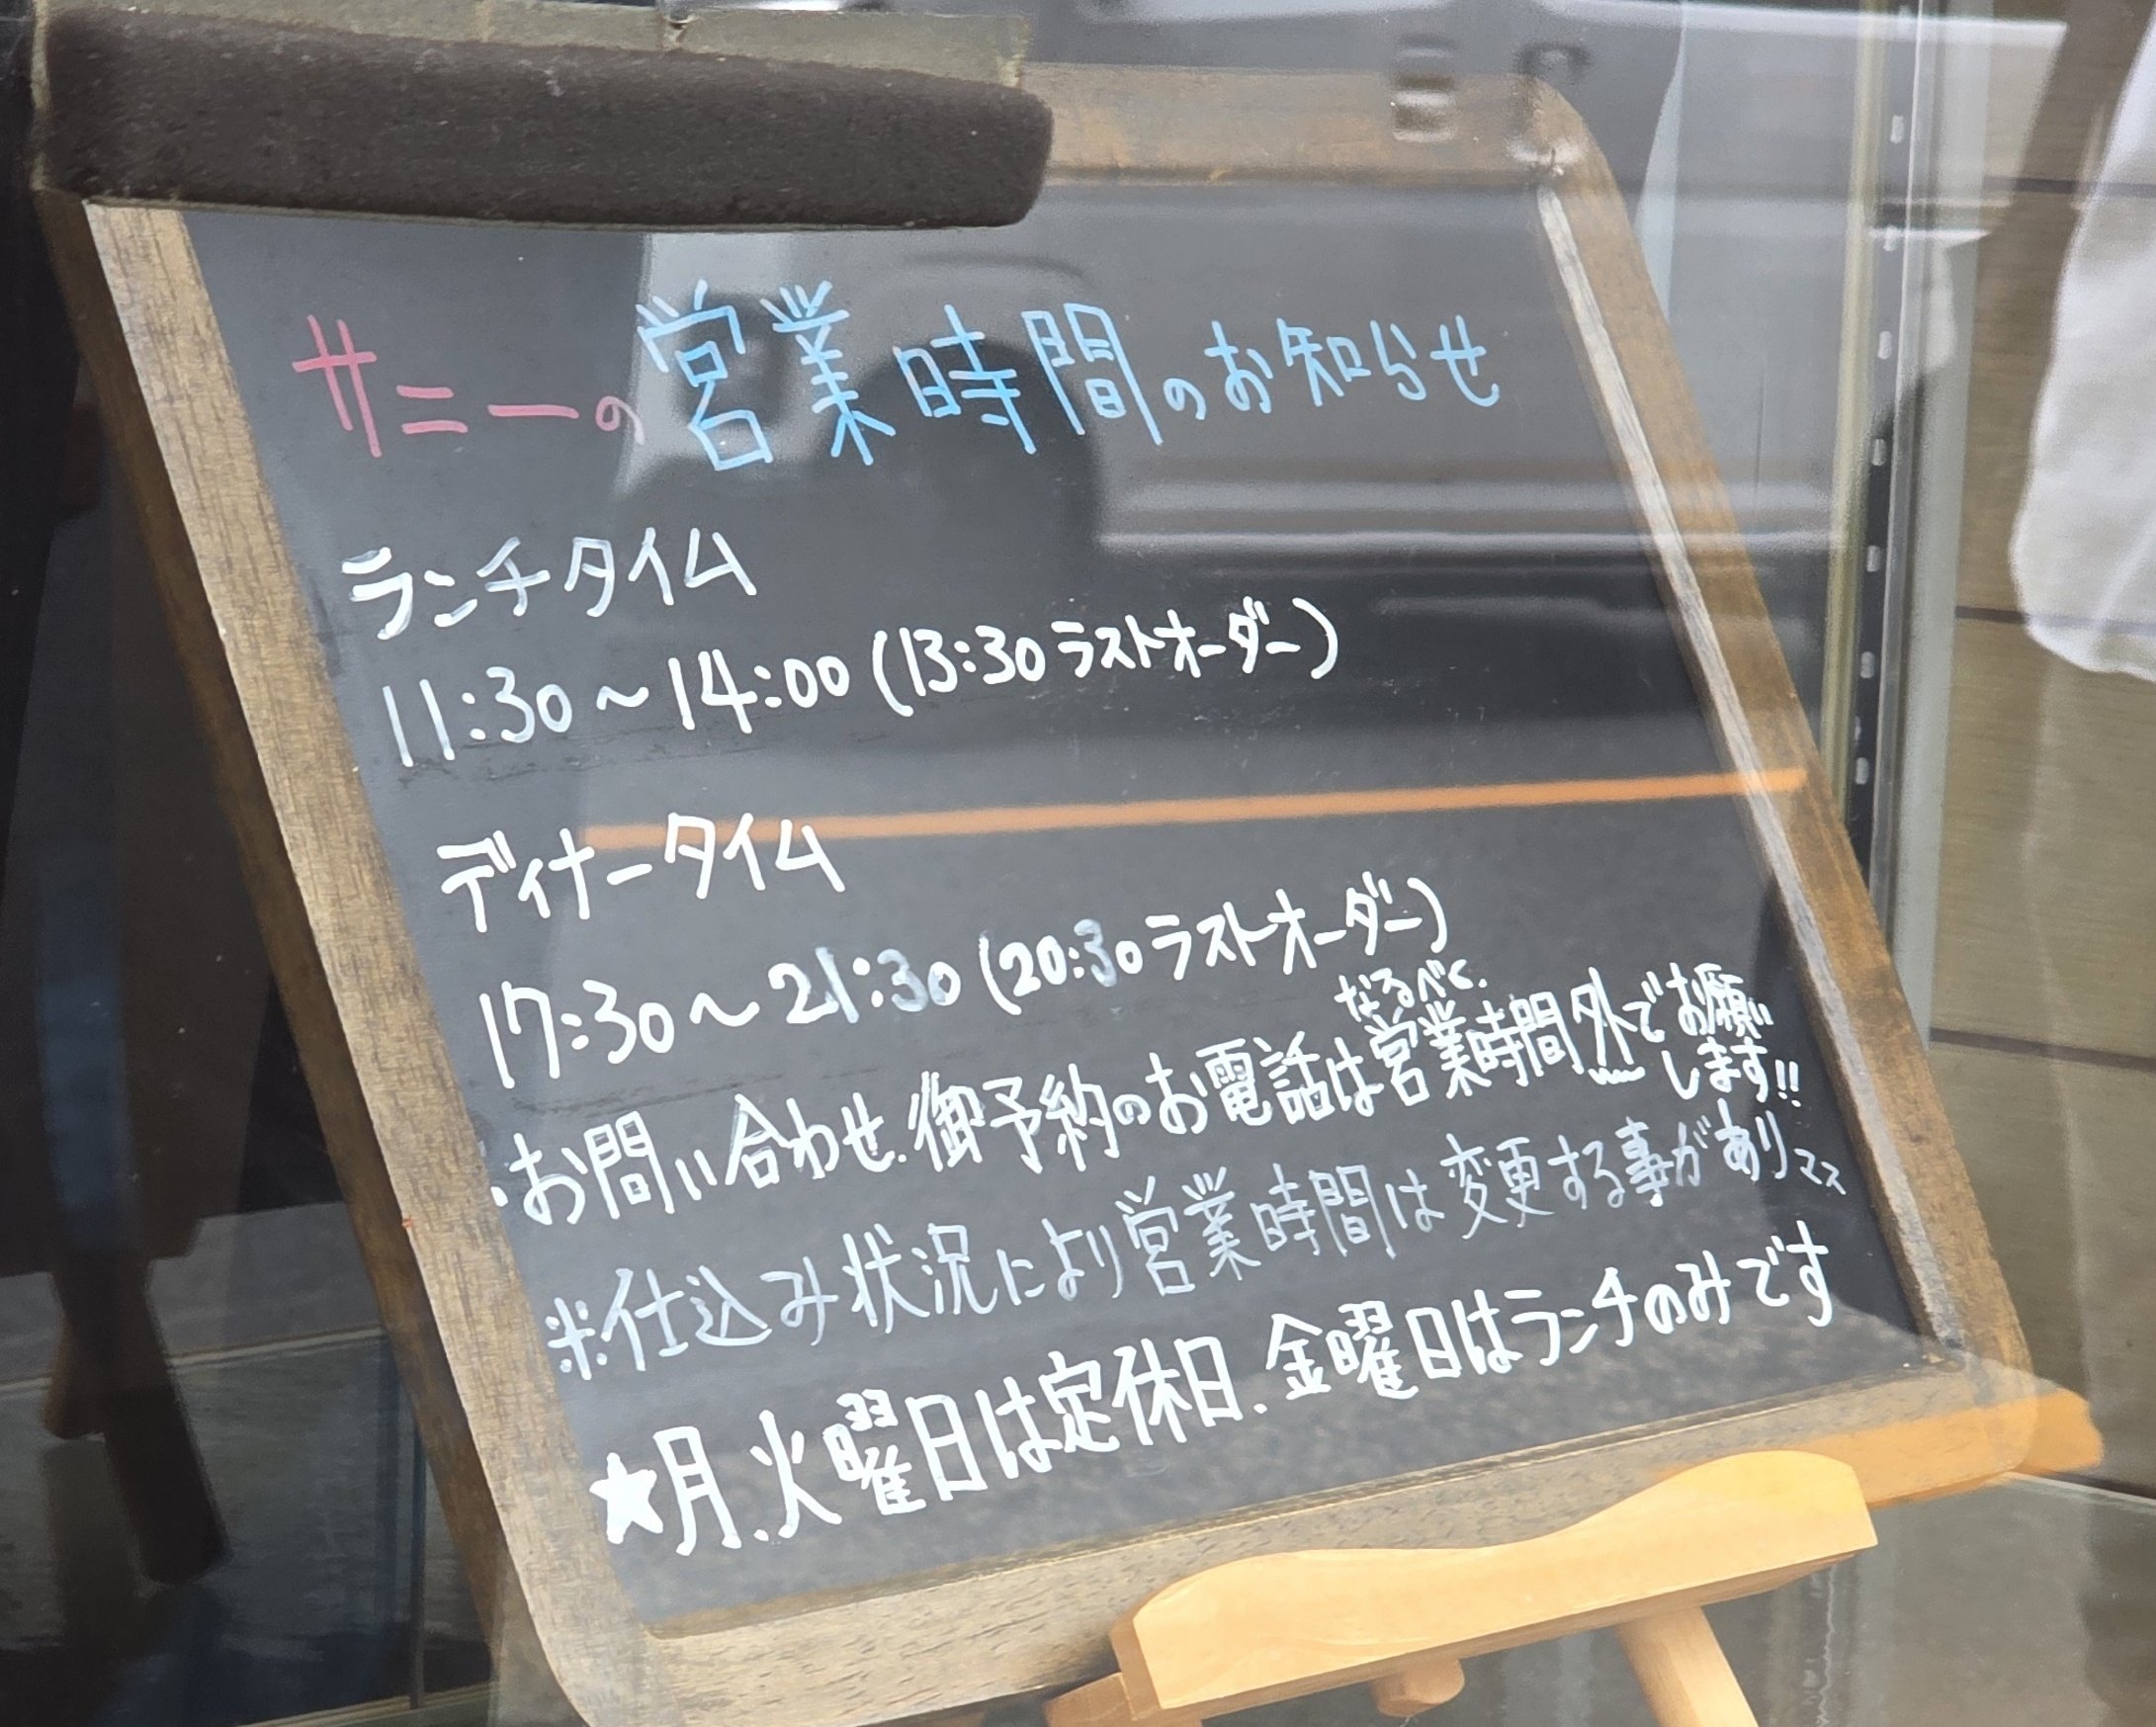 サニーの営業時間のお知らせ
ランチタイム
11:30～14:00(13:30ラストオーダー)
ディナータイム
17:30～21:30(20:30ラストオーダー)
なるべく.
・お問い合わせ.御予約のお電話は営業時間外でお願い
します!!
※仕込み状況により営業時間は変更する事がありマス
★月.火曜日は定休日.金曜日はランチのみです